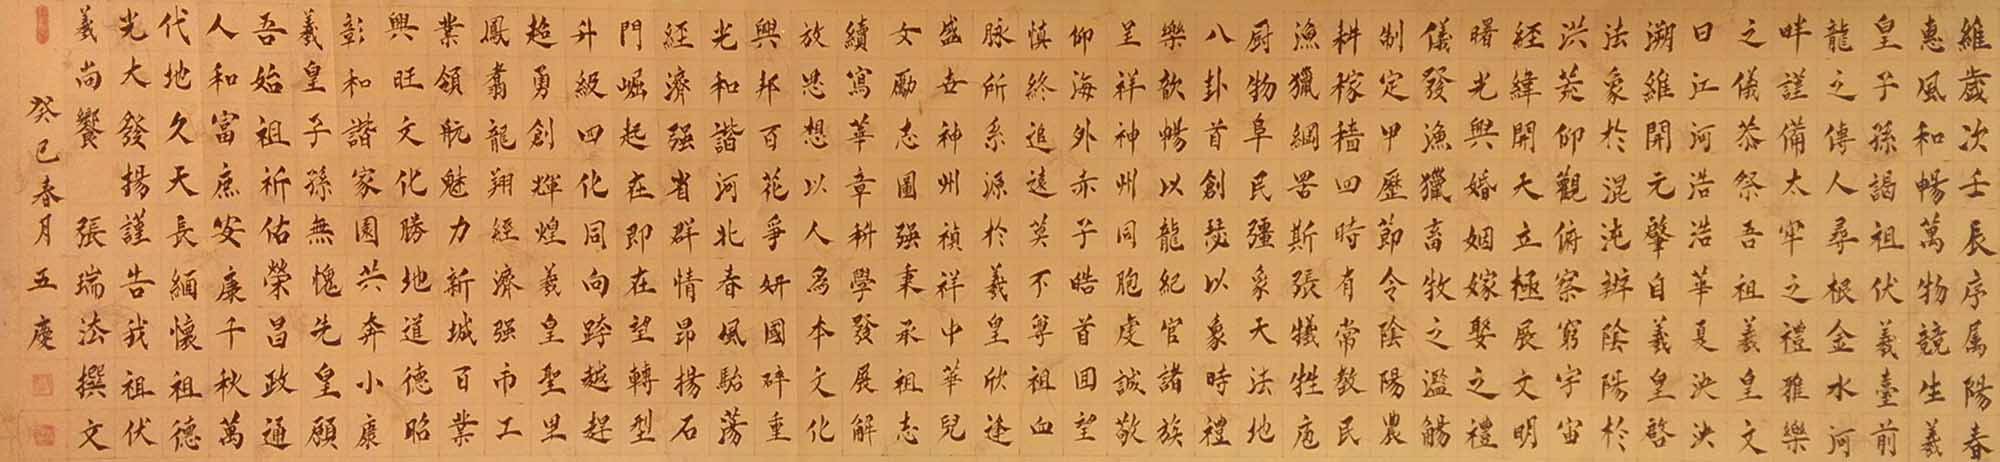 維歲次壬辰序属陽春
惠風和暢萬物競生羲
皇子孫謁祖伏羲臺前
龍之傳人尋根金水河
畔謹備太牢之禮雅樂
之儀恭祭吾祖羲皇文
曰江河浩浩華夏泱泱
溯維開元肇自羲皇啓
法象於混沌辨陰陽於
洪荒仰觀俯察窮宇宙
經緯開天立極展文明
曙光興婚姻嫁娶之禮
儀發漁獵畜牧之濫觴
制定甲歷節令陰陽農
耕稼穡四時有常教民
漁獵綱罟斯張犠牲庖
厨物阜民彊象天法地
八卦首創琴以象時禮
樂歆暢以龍紀官諸族
呈祥神州同胞虔誠敬
仰海外赤子皓首囬望
慎終追遠莫不尊祖血
脉所系源於羲皇欣逢
盛世神州禎祥中華兒
女勵志圖强秉承祖志
續寫華章耕學發展解
放思想以人為本文化
興邦百花爭妍國碎重
光和諧河北春風駘蕩
經濟强省群情昂揚石
門崛起在即在望轉型
升級四化同向跨越趕
超勇創輝煌羲皇聖里
鳳翥龍翔經濟强市工
業領航魅力新城百業
興旺文化勝地道德昭
彰和諧家園共奔小康
羲皇子孫無愧先皇願
吾始祖祈佑榮昌政通
人和富庶安康千秋萬
代地久天長緬懷祖德
光大發揚謹告我祖伏
羲尚饗 張瑞法撰文
癸巳春月五慶